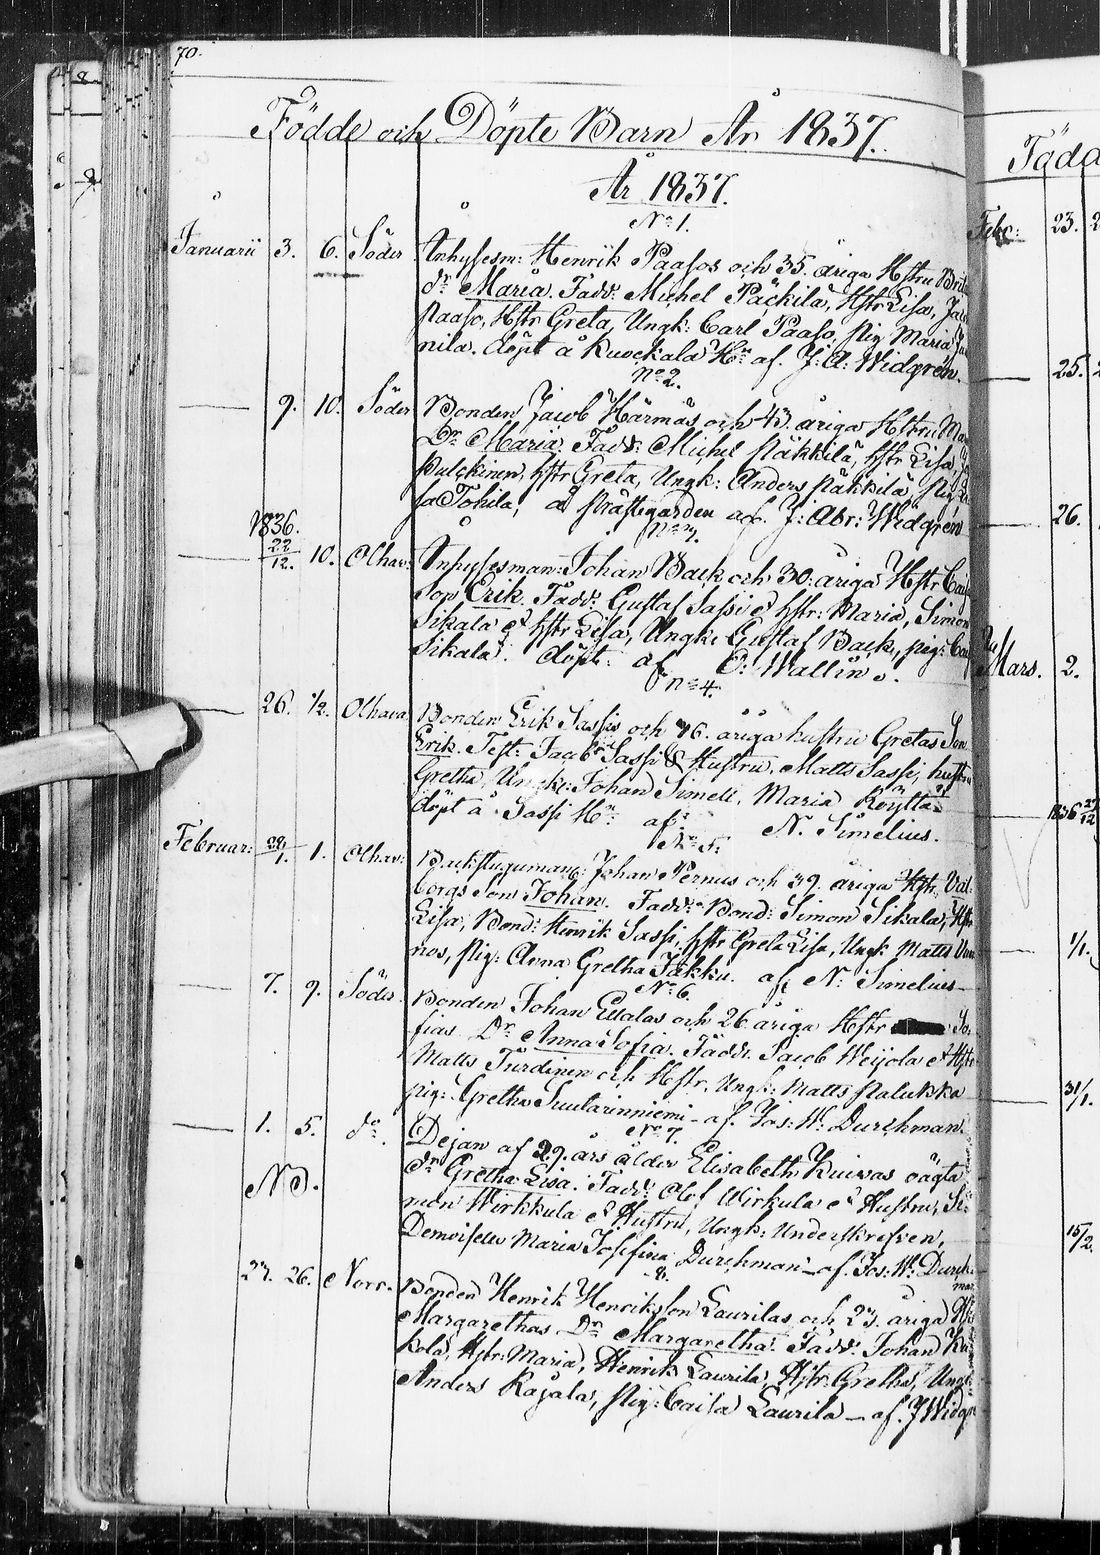 70.
Födde och Döpte Barn År 1837.
År 1837.
No 1.
Januarii 3. 6. Söder Inhysesm: Henrik Paasos och 35. åriga Hstru
dr Maria. Fadd: Michel Päckilä, Hstr Lisa,
Paaso, Hstr Greta, Ungk: Carl Paaso, Pig Maria
nila. döpt å Kuockala Hn af J: A: Widgrén.
No 2.
9. 10. Söder Bonden Jacob Härmäs och 43. åriga Hstru
Dr Maria. Fadd: Michel Päkkilä, hstr Lisa,
Pulckinen, hstr Greta, Ungk: Anders Päkkilä
sa Tohila, å Prästegården af J: Abr: Widgrén
No 3.
1836.
22/12. 10. Olhav: Inhysesman: Johan Back och 30: åriga Hstr
Son Erik. Fadd: Gustaf Sassi & hstr: Maria, Simon
Sikala & hstr Lisa, Ungk: Gustaf Back, pig:
Sikala. döpt: af O: Wallin.
No 4.
26. 1/2. Olhava Bonden Erik Sassis och 46. åriga hustru Gretas Son
Erik. Test: Jacob Sassi & Hustru, Matts Sassi, hustru
Gretha, Ungk: Johan Simeli, Maria Röyttä
döpt å Sassi Hn af N. Simelius.
No 5.
Februar: 1. Olhav: Backstuguman: Johan Pernus och 39. åriga Hstr. Val
borgs Son Johan. Fadd: Bond: Simon Sikala, Hstr
Lisa, Bond: Henrik Sassi, hstr Greta Lisa, Ungk Matts
nos, Pig: Anna Gretha Jakku. af N: Simelius
No 6.
7. 9. Söder. Bonden Johan Ellalas och 26 åriga Hstr So-
fias Dr Anna Sofia. Fadd: Jacob Weijola & Hstr
Matts Turdinen och Hstr, Ungk: Matts Palukka
pig: Gretha Suutarinniemi - af Jos: W: Durchman.
No 7.
1. 5. do. Dejan af 29. års ålder Elisabeth Kuivas oägta
NB. dr Gretha Lisa. Fadd: Olof Wirkula & Hustru, Si-
mon Wirkkula & Hustru, Ungk: Underskrefven,
Demoiselle Maria Josefina Durchman - af Jos: W: Durch
man
8.
23. 26. Norr. Bonden Henrik Henriksson Laurilas och 23. åriga
Margarethas Dr Margaretha. Fadd: Johan
kola, Hstr: Maria, Henrik Laurila, Hstr Gretha, Ungk:
Anders Rajala, Pig: Caisa Laurila - af. J Widgr
Född
Febr: 23.
25.
26.
Mars. 2.
1836 29/12
1/1.
31/1.
15/2.